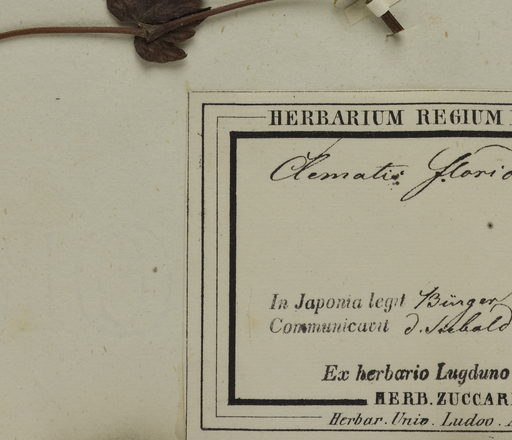 HERBARIUM REGIUM
Clematis florid
In Japonia legit Bürger
Communicavit d. Siebold
Ex herbario Lugduno
HERB. ZUCCAR
Herbar. Univ. Ludov.